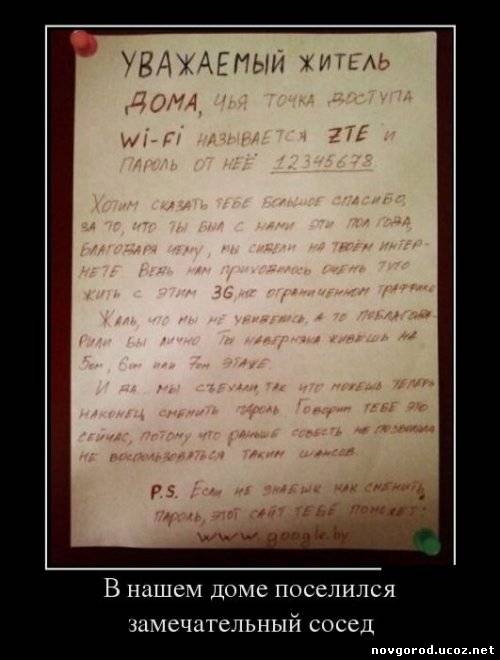 УВАЖАЕМЫЙ ЖИТЕЛЬ
ДОМА, ЧЬЯ ТОЧКА ДОСТУПА
Wi-Fi НАЗЫВАЕТСЯ ZTE И
ПАРОЛЬ ОТ НЕЁ 12345678
ХОТИМ СКАЗАТЬ ТЕБЕ БОЛЬШОЕ СПАСИБО,
ЗА ТО, ЧТО ТЫ БЫЛ С НАМИ ЭТИ ПОЛ ГОДА,
БЛАГОДАРЯ ЧЕМУ, МЫ СИДЕЛИ НА ТВОЁМ ИНТЕР-
НЕТЕ. ВЕДЬ НАМ ПРИХОДИЛОСЬ ОЧЕНЬ ТУГО
ЖИТЬ С ЭТИМ 3G, ОГРАНИЧЕННОМ ТРАФФИКЕ
ЖАЛЬ, ЧТО МЫ НЕ УВИДЕЛИСЬ, А ТО ПОБЛАГОДА-
РИЛИ БЫ ЛИЧНО. ТЫ НАВЕРНЯКА ЖИВЁШЬ НА
5ом, 6ом ИЛИ 7ом ЭТАЖЕ.
И ДА... МЫ СЪЕХАЛИ, ТАК ЧТО МОЖЕШЬ ТЕПЕРЬ
НАКОНЕЦ СМЕНИТЬ ПАРОЛЬ. ГОВОРИМ ТЕБЕ ЭТО
СЕЙЧАС, ПОТОМУ ЧТО РАНЬШЕ СОВЕСТЬ НЕ ПОЗВОЛИЛА
НЕ ВОСПОЛЬЗОВАТЬСЯ ТАКИМ ШАНСОМ.
P.S. ЕСЛИ НЕ ЗНАЕШЬ КАК СМЕНИТЬ
ПАРОЛЬ, ЭТОТ САЙТ ТЕБЕ ПОМОЖЕТ:
www.google.by
В нашем доме поселился
замечательный сосед
novgorod.ucoz.net